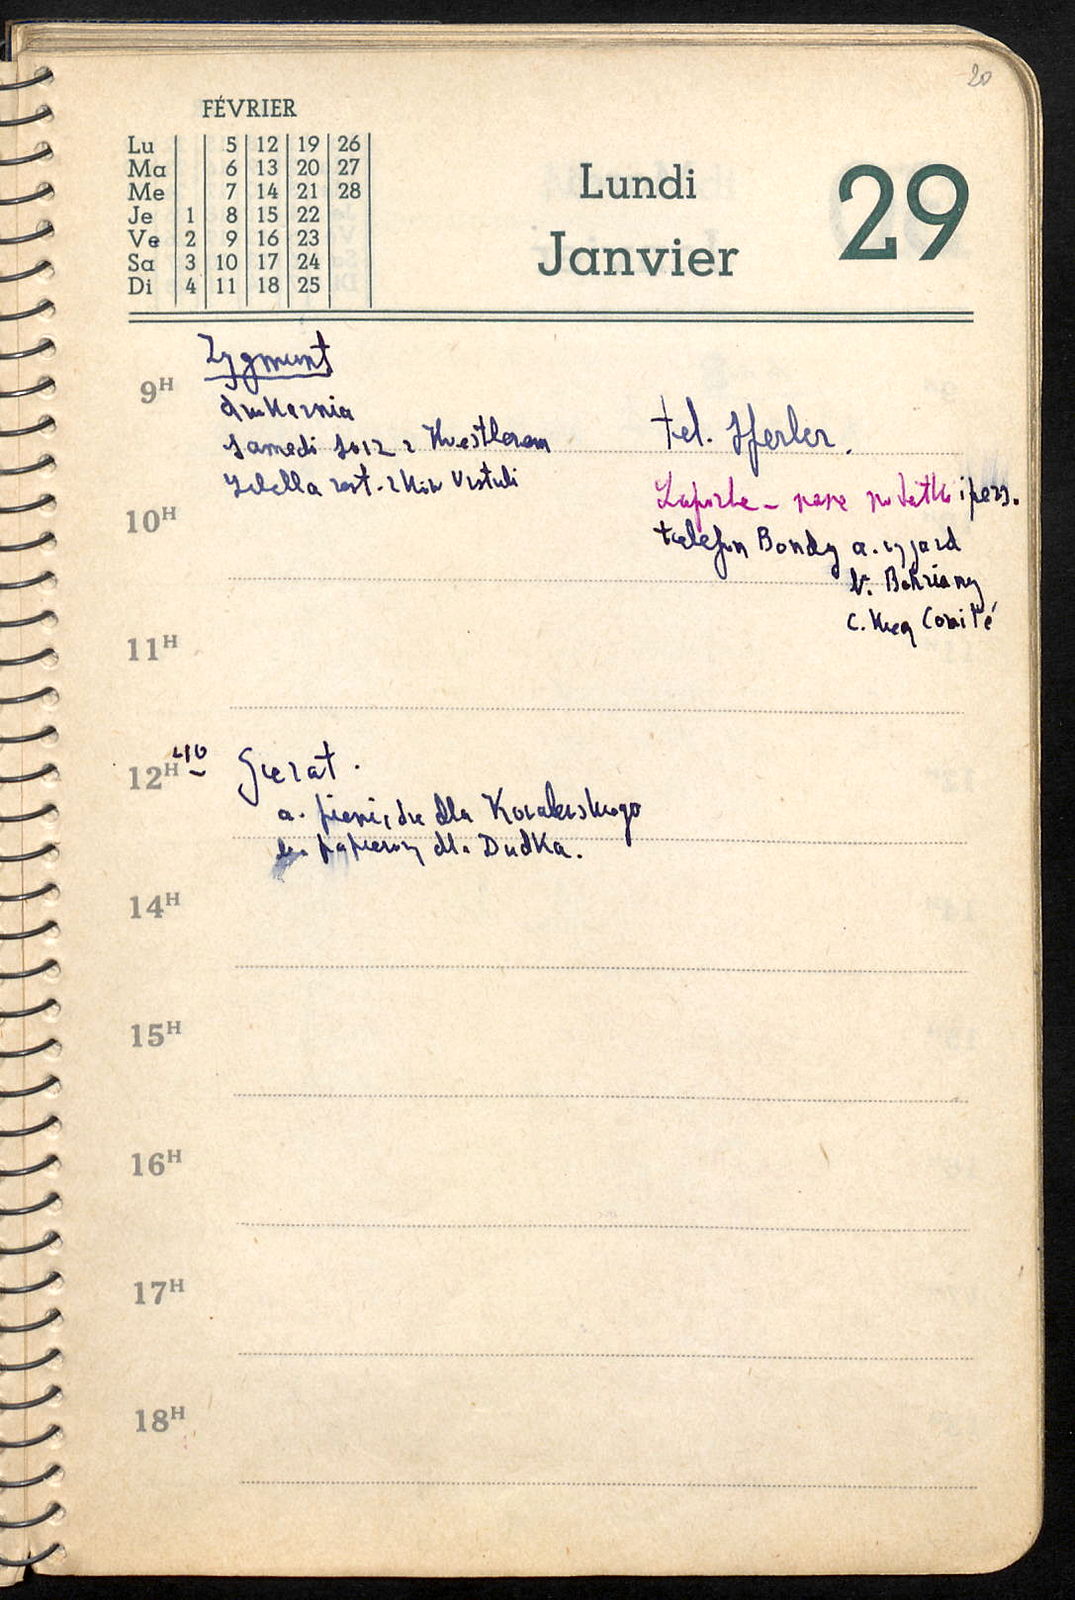 20
FÉVRIER
Lu 5 12 19 26
Ma 6 13 20 27
Me 7 14 21 28
Je 1 8 15 22
Ve 2 9 16 23
Sa 3 10 17 24
Di 4 11 18 25
Lundi 29
Janvier
Zygmunt
9H
drukarnia
samedi z Koestlerem
tel. Sperber.
10H
Laporte - i pers.
telefon Bondy a. wyjazd
b. Bokriany
c. Kieg Comité
11H
12H 40 Gierat.
a. pieniądze dla Kowalewskiego
b. papierosy dla Dudka.
14H
15H
16H
17H
18H